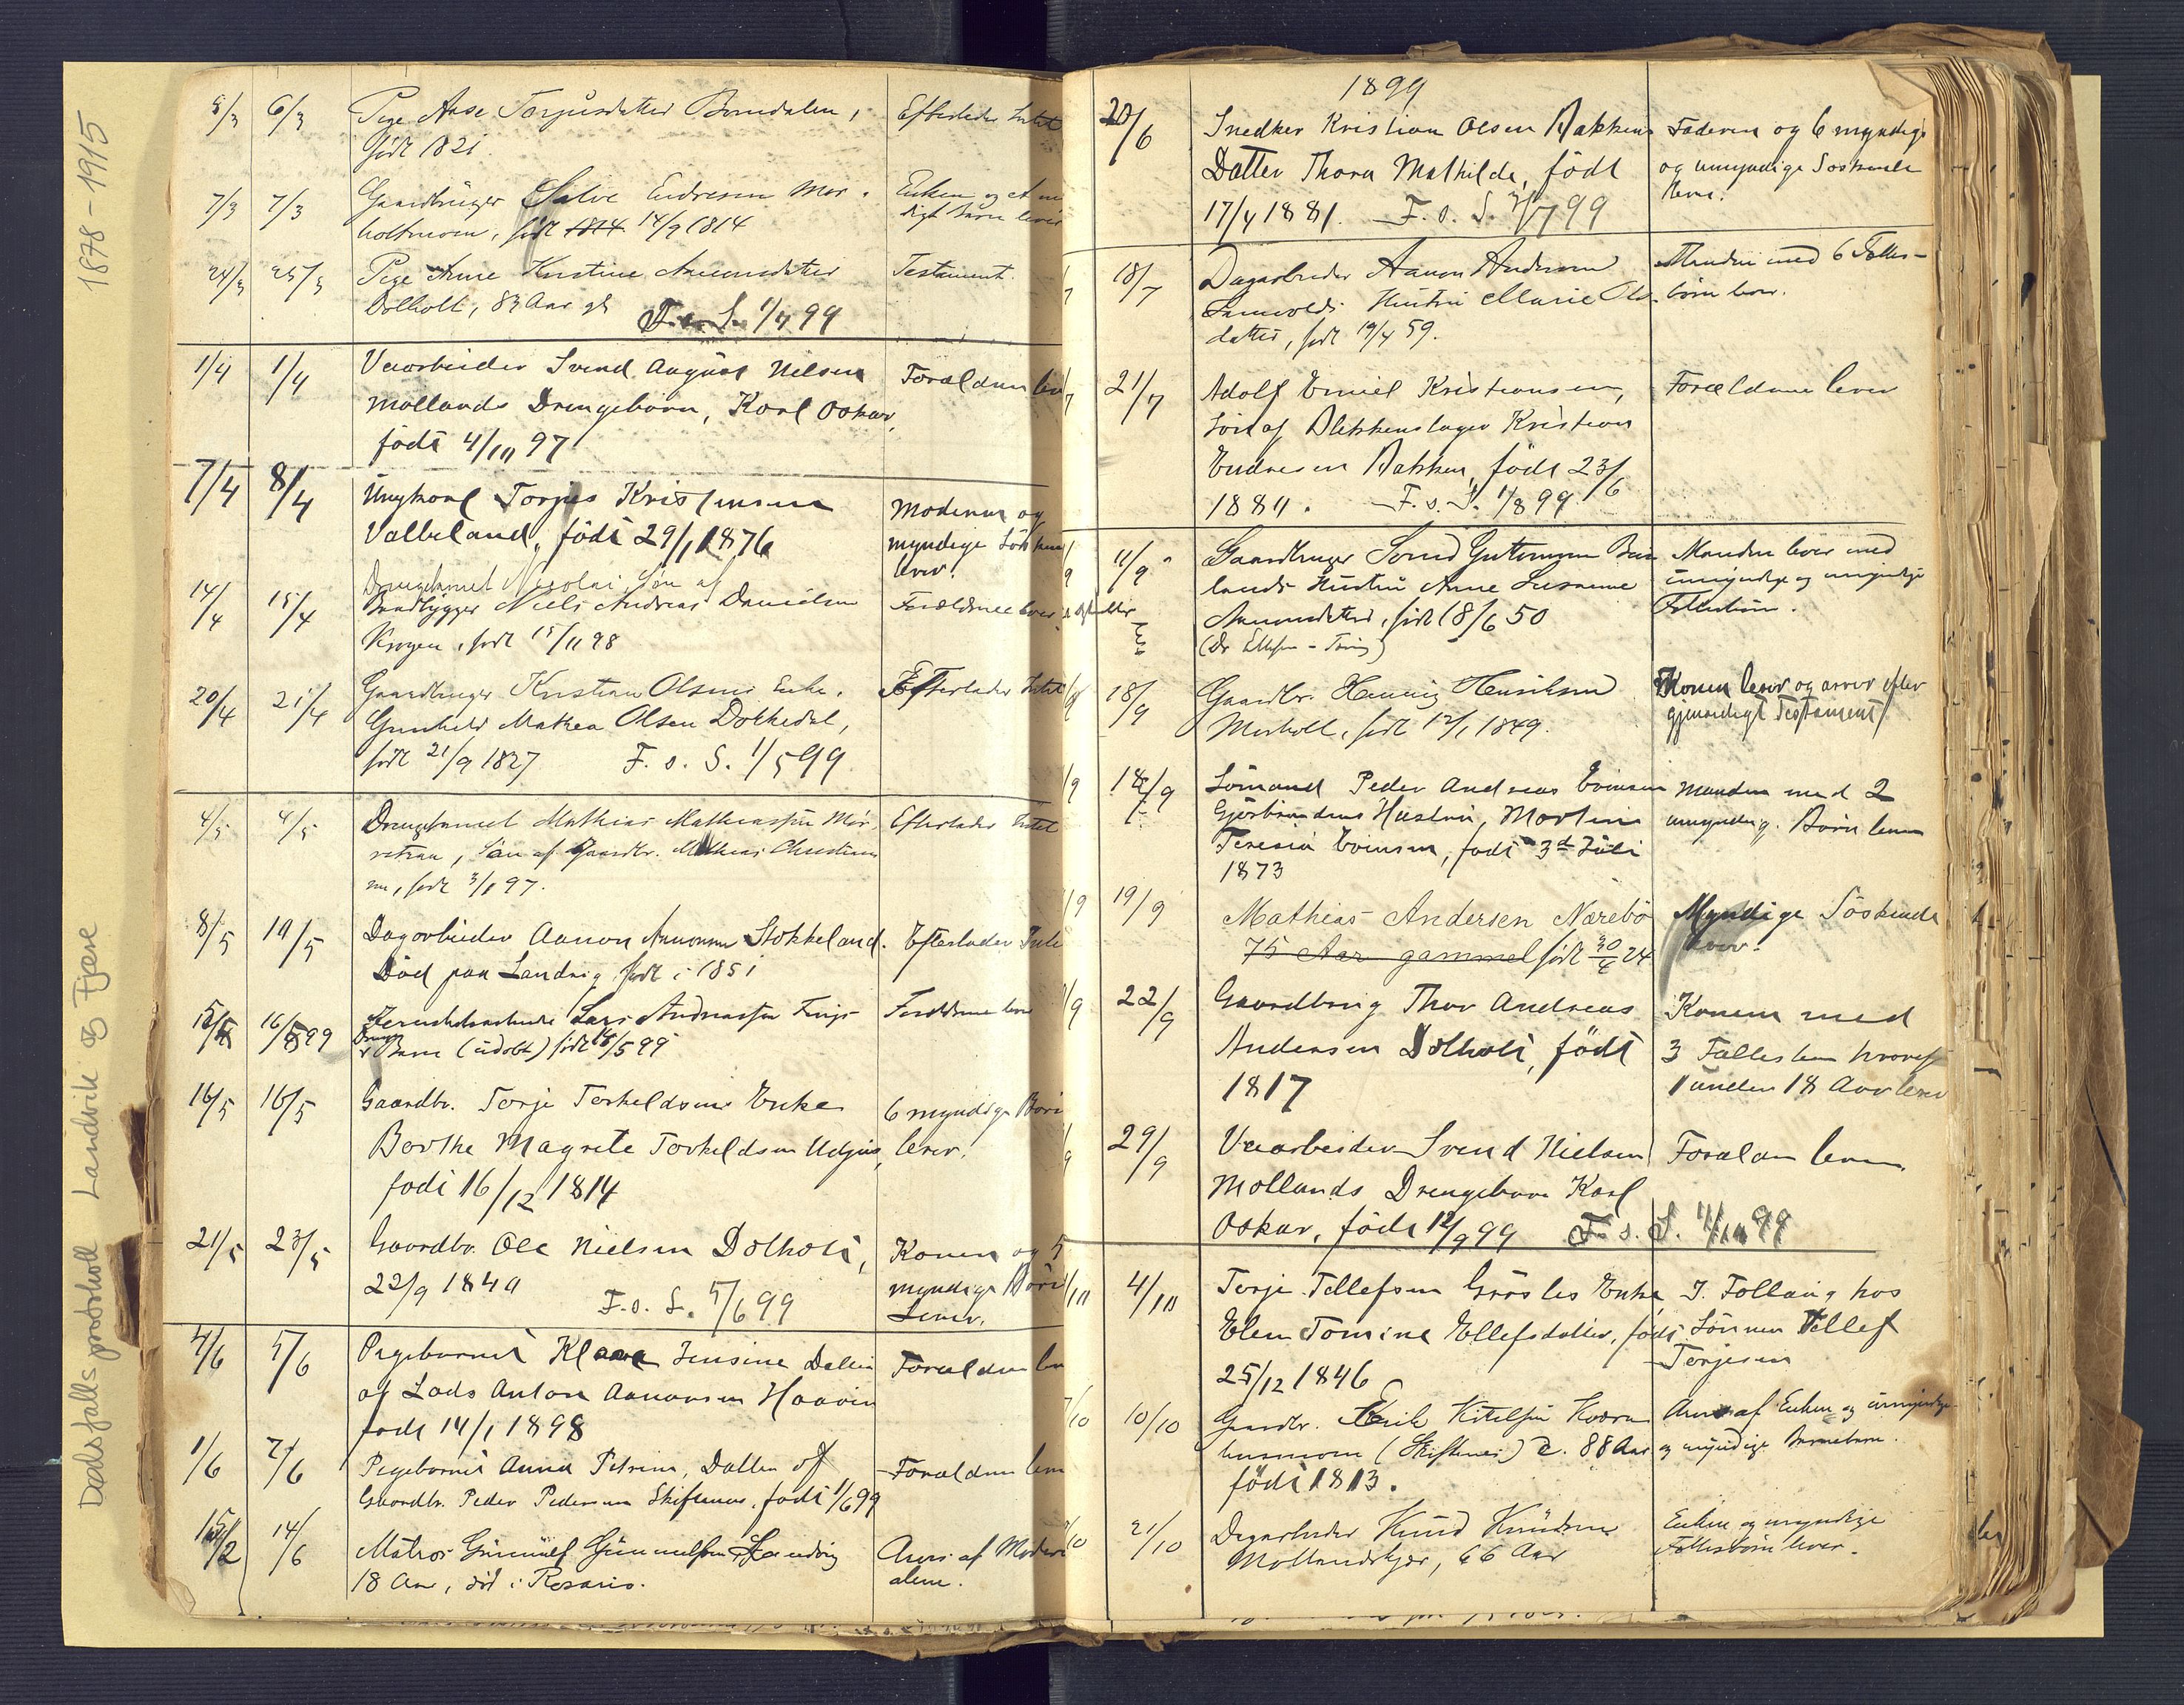 1878 - 1915
Dødsfallsprotokoll Landvik og Fjære
5/3 6/3 Pige Aase Torjusdatter Bomdalen, Efterlader Intet
født 1821.
7/3 7/3 Gaardbruger Salve Endresen Mor- Enken og et
holtmoen, født 1814 14/9 1814
24/3 25/3 Pige Anne Kristine Aanonsdatter Testament.
Dolholt, 83 Aar gl F. o. S. 1/4 99
1/4 1/4 Veiarbeider Svend August Nilsen Forældrene
Mollands Drengebarn, Karl Oskar,
født 4/10 97
7/4 8/4 Ungkarl Torjus Kristensen Moderen og
Valbeland, født 29/1 1876 myndige
lever.
14/4 15/4 Drengebarnet Nicolai Søn af
Niels Andreas Danielsen Forældrene lever
Krogen, født 15/11 98
20/4 21/4 Gaardbruger Kristian Olsens Enke, Efterlader Intet
Gunhild Mathea Olsen Dokkedal,
født 21/9 1827 F. o. S. 1/5 99
4/5 4/5 Drengebarnet Mathias Mathiassen Mør- Efterlader Intet
Søn af Gaardbr. Mathias Christian
sen, født 3/1 97.
8/5 10/5 Dagarbeider Aanon Aanonsen Stokkeland. Efterlader
Død paa Landvig født i 1851
15/5 16/5 99 Lars Andreassen Forældrene lever
Barn (udøbt) født 15/5 99
16/5 16/5 Gaardbr. Terje Terkeldsens Enke 6 myndige
Berthe Magrete Torkeldsen lever.
født 16/12 1814
21/5 23/5 Gaardbr. Ole Nielsen Dolholt, Konen og 5
22/9 1840 myndige
F. o. S. 5/6 99 Lever.
4/6 5/6 Pigebarnet Klara Jensine Datter Forældrene
af Lods Anton Aanonsen Haaven
født 14/1 1898
1/6 7/6 Pigebarnet Anna Petrine, Datter af Forældrene
Gaardbr. Peder Pedersen Skiftenes, født 1/6 99
15/2 14/6 Matros Gunnulf Gunnulfsen Landvig Arves af Moderen
18 Aar, død i Rosario. alene.
1899
20/6 Snedker Kristian Olsen Bakkens Faderen og 6 myndige
Datter Thora Mathilde, født og umyndige Søskende
17/4 1881. F. o. S. 3/7 99 lever.
18/7 Dagarbeider Aanon Andersen Manden med 6 Fælles-
Hustru Marie Ols- børn lever.
datter, født 19/4 59.
21/7 Adolf Emiel Kristiansen, Forældrene lever
Søn af Blikkenslager Kristian
Endresen Bakken, født 23/6
1880. F. o. S. 1/8 99
11/9 Gaardbruger Svend Guttormsen Manden lever med
lands Hustru Anne Susanne myndige og umyndige
Aanonsdatter, født 18/6 50 Fællesbørn.
18/9 Gaardbr. Henning Henriksen Konen lever og arver efter
Morholt, født 12/1 1849. gjensidigt Testament
14/9 Sømand Peder Andreas Evensen Manden med 2
Hustru, Martine umyndig. Børn lever
Teresia Evensen, født 3d Juli
1873
19/9 Mathias Andersen Nærebø Myndige Søskende
75 Aar gammel født 30/4 24 lever.
22/9 Gaardbrug Thor Andreas Konen med
Andersen Dolholt, født 3 Fælles hvoraf
1817 1 under 18 Aar lever
29/9 Veiarbeider Svend Nielsen Forælder lever.
Mollands Drengebarn Karl
Oskar, født 12/9 99 F. o. S. 1/10 99
4/10 Terje Tellefsen Grøsles Enke I. Follaug hos
Elen Tomine Ellefsdatter, født Sønnen Tellef
25/12 1846 Terjesen
10/10 Gaardbr. Eerik Kitelsen Kværn Arves af Enken og umyndige
husmoen (Skiftenes) c. 88 Aar og myndige Børnebørn.
født 1813.
21/10 Dagarbeider Knud Knudsen Enken og myndige
Mollandskjær, 66 Aar Fællesbørn lever.